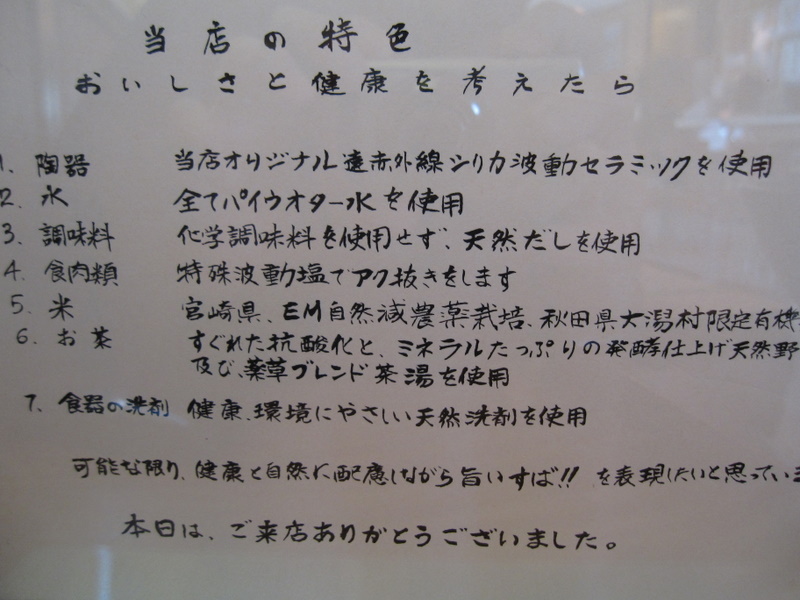 当店の特色
おいしさと健康を考えたら
1. 陶器 当店オリジナル遠赤外線シリカ波動セラミックを使用
2. 水 全てパイウオター水を使用
3. 調味料 化学調味料を使用せず、天然だしを使用
4. 食肉類 特殊波動塩でアク抜きをします
5. 米 宮崎県、EM自然減農薬栽培、秋田県大潟村限定有機
6. お茶 すぐれた抗酸化と、ミネラルたっぷりの発酵仕上げ天然野
及び、薬草ブレンド茶湯を使用
7. 食器の洗剤 健康、環境にやさしい天然洗剤を使用
可能な限り、健康と自然に配慮しながら旨いすば!! を表現したいと思ってい
本日は、ご来店ありがとうございました。